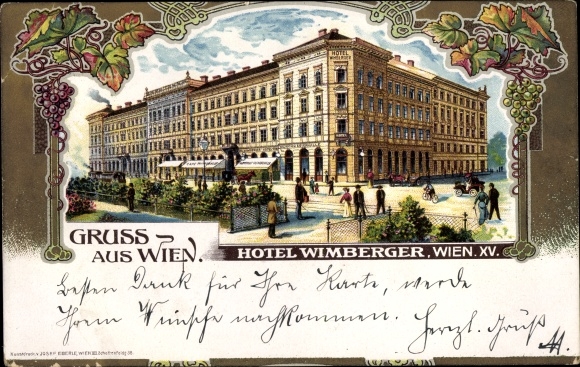 HOTEL
WIMBERGER
GRUSS
AUS WIEN.
HOTEL WIMBERGER, WIEN. XV.
Besten Dank für Ihre Karte, werde
Ihrem Wunsche nachkommen. Herzl. Gruß
Kunstdruck v. JOSEF EBERLE, WIEN